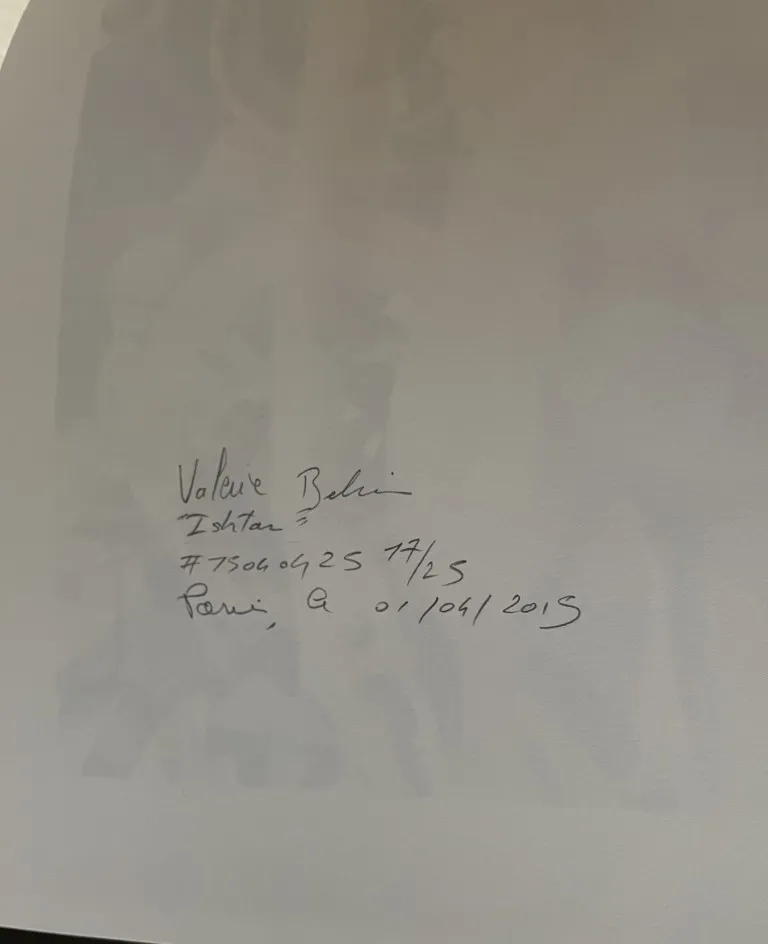 Valérie Belin
"Ishtar"
#15040425 17/25
Paris, le 01/04/2015